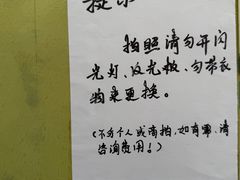 提示
拍照请勿开闪
光灯、反光板、勿带衣
物来更换。
(不夸个人或商拍，如有需，请
咨询费用！)